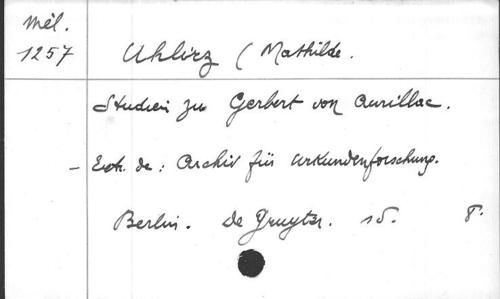 Mél.
1257
Uhlirz (Mathilde.
Studien zu Gerbert von Aurillac.
- Extr. de: Archiv für Urkundenforschung.
Berlin. De Gruyter. sd. 8.